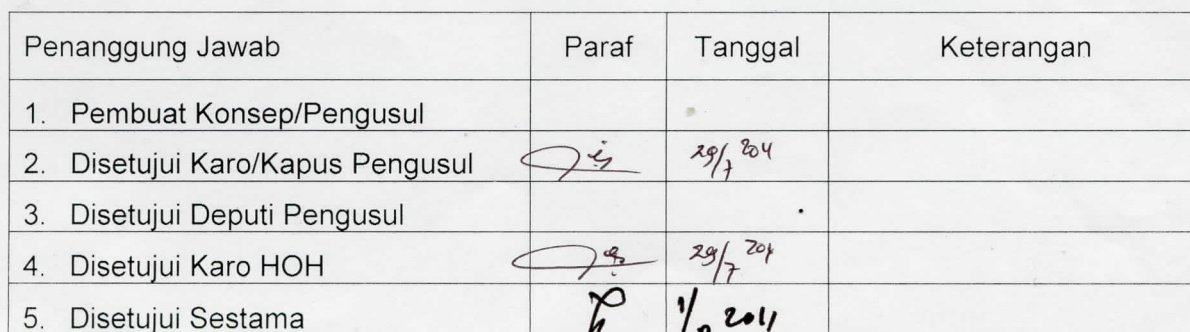 Penanggung Jawab Paraf Tanggal Keterangan
1. Pembuat Konsep/Pengusul
2. Disetujui Karo/Kapus Pengusul 29/7
3. Disetujui Deputi Pengusul
4. Disetujui Karo HOH 29/7
5. Disetujui Sestama 2011